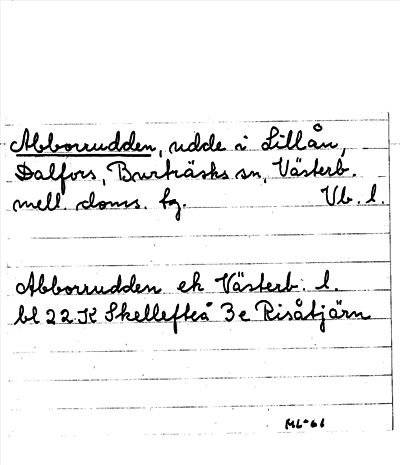 Abborrudden, udde i Lillån,
Dalfors, Burträsks sn, Västerb.
mell. doms. hg. Vb. l.
Abborrudden ek Västerb. l.
bl 22K Skellefteå 3e Risåtjärn
ML-61